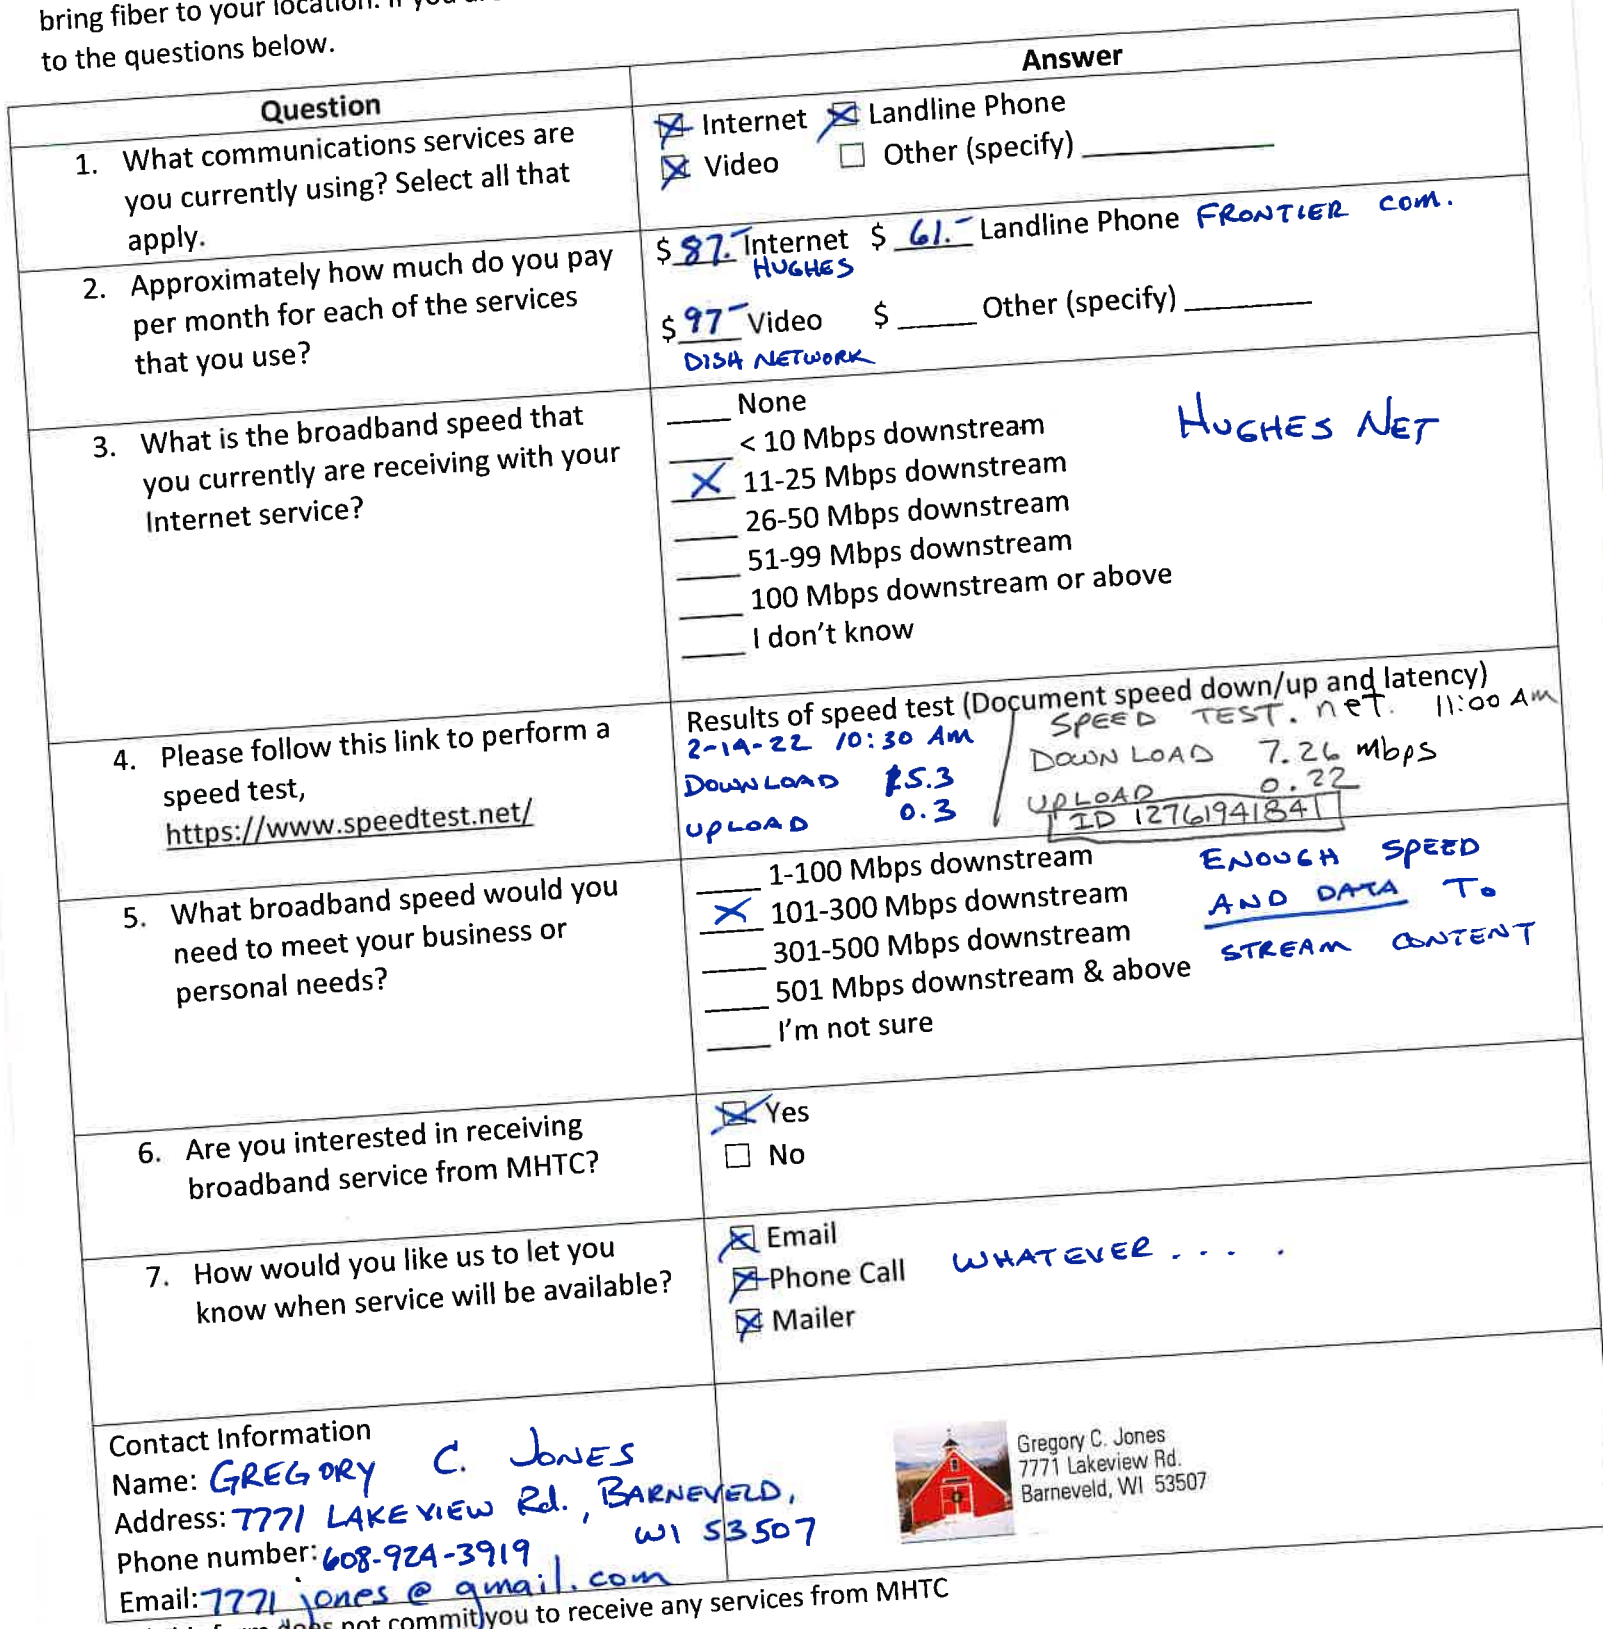 bring fiber to your location. If you
to the questions below.
Question
Answer
1. What communications services are
you currently using? Select all that
apply.
☒ Internet ☒ Landline Phone
☒ Video ☐ Other (specify) ________
2. Approximately how much do you pay
per month for each of the services
that you use?
$ 87.- Internet $ 61.- Landline Phone FRONTIER COM.
HUGHES
$ 97- Video $ _____ Other (specify) ________
DISH NETWORK
3. What is the broadband speed that
you currently are receiving with your
Internet service?
____ None
____ < 10 Mbps downstream
HUGHES NET
X 11-25 Mbps downstream
____ 26-50 Mbps downstream
____ 51-99 Mbps downstream
____ 100 Mbps downstream or above
____ I don't know
4. Please follow this link to perform a
speed test,
https://www.speedtest.net/
Results of speed test (Document speed down/up and latency)
2-14-22 10:30 AM
DOWNLOAD 15.3
UPLOAD 0.3
SPEED TEST. net. 11:00 AM
DOWNLOAD 7.26 mbps
UPLOAD 0.22
ID 12761941841
5. What broadband speed would you
need to meet your business or
personal needs?
____ 1-100 Mbps downstream
X 101-300 Mbps downstream
____ 301-500 Mbps downstream
____ 501 Mbps downstream & above
____ I'm not sure
ENOUGH SPEED
AND DATA TO
STREAM CONTENT
6. Are you interested in receiving
broadband service from MHTC?
☒ Yes
☐ No
7. How would you like us to let you
know when service will be available?
☒ Email
☒ Phone Call WHATEVER . . . .
☒ Mailer
Contact Information
Name: GREGORY C. JONES
Address: 7771 LAKEVIEW Rd., BARNEVELD,
WI 53507
Phone number: 608-924-3919
Email: 7771jones@gmail.com
Gregory C. Jones
7771 Lakeview Rd.
Barneveld, WI 53507
form does not commit you to receive any services from MHTC